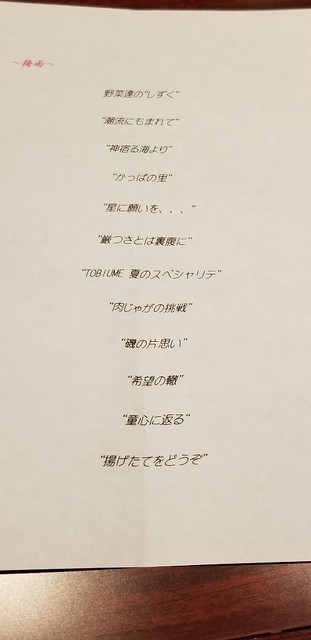 ～梅雨～
野菜達の"しずく"
"潮流にもまれて"
"神宿る海より"
"かっぱの里"
"星に願いを、、、"
"厳つさとは裏腹に"
"TOBIUME 夏のスペシャリテ"
"肉じゃがの挑戦"
"磯の片思い"
"希望の轍"
"童心に返る"
"揚げたてをどうぞ"